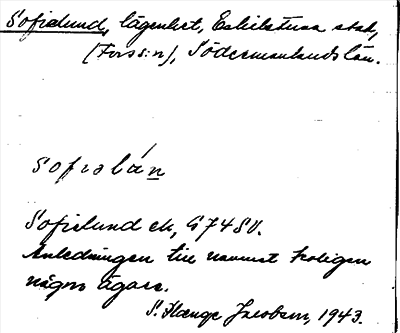 Sofielund, lägenhet, Eskilstuna stad,
(Fors s:n), Södermanlands län.
sofialún
Sofielund ek, G 74 SV.
Anledningen till namnet troligen
någon ägare.
S. Hænge Jacobsen, 1943.